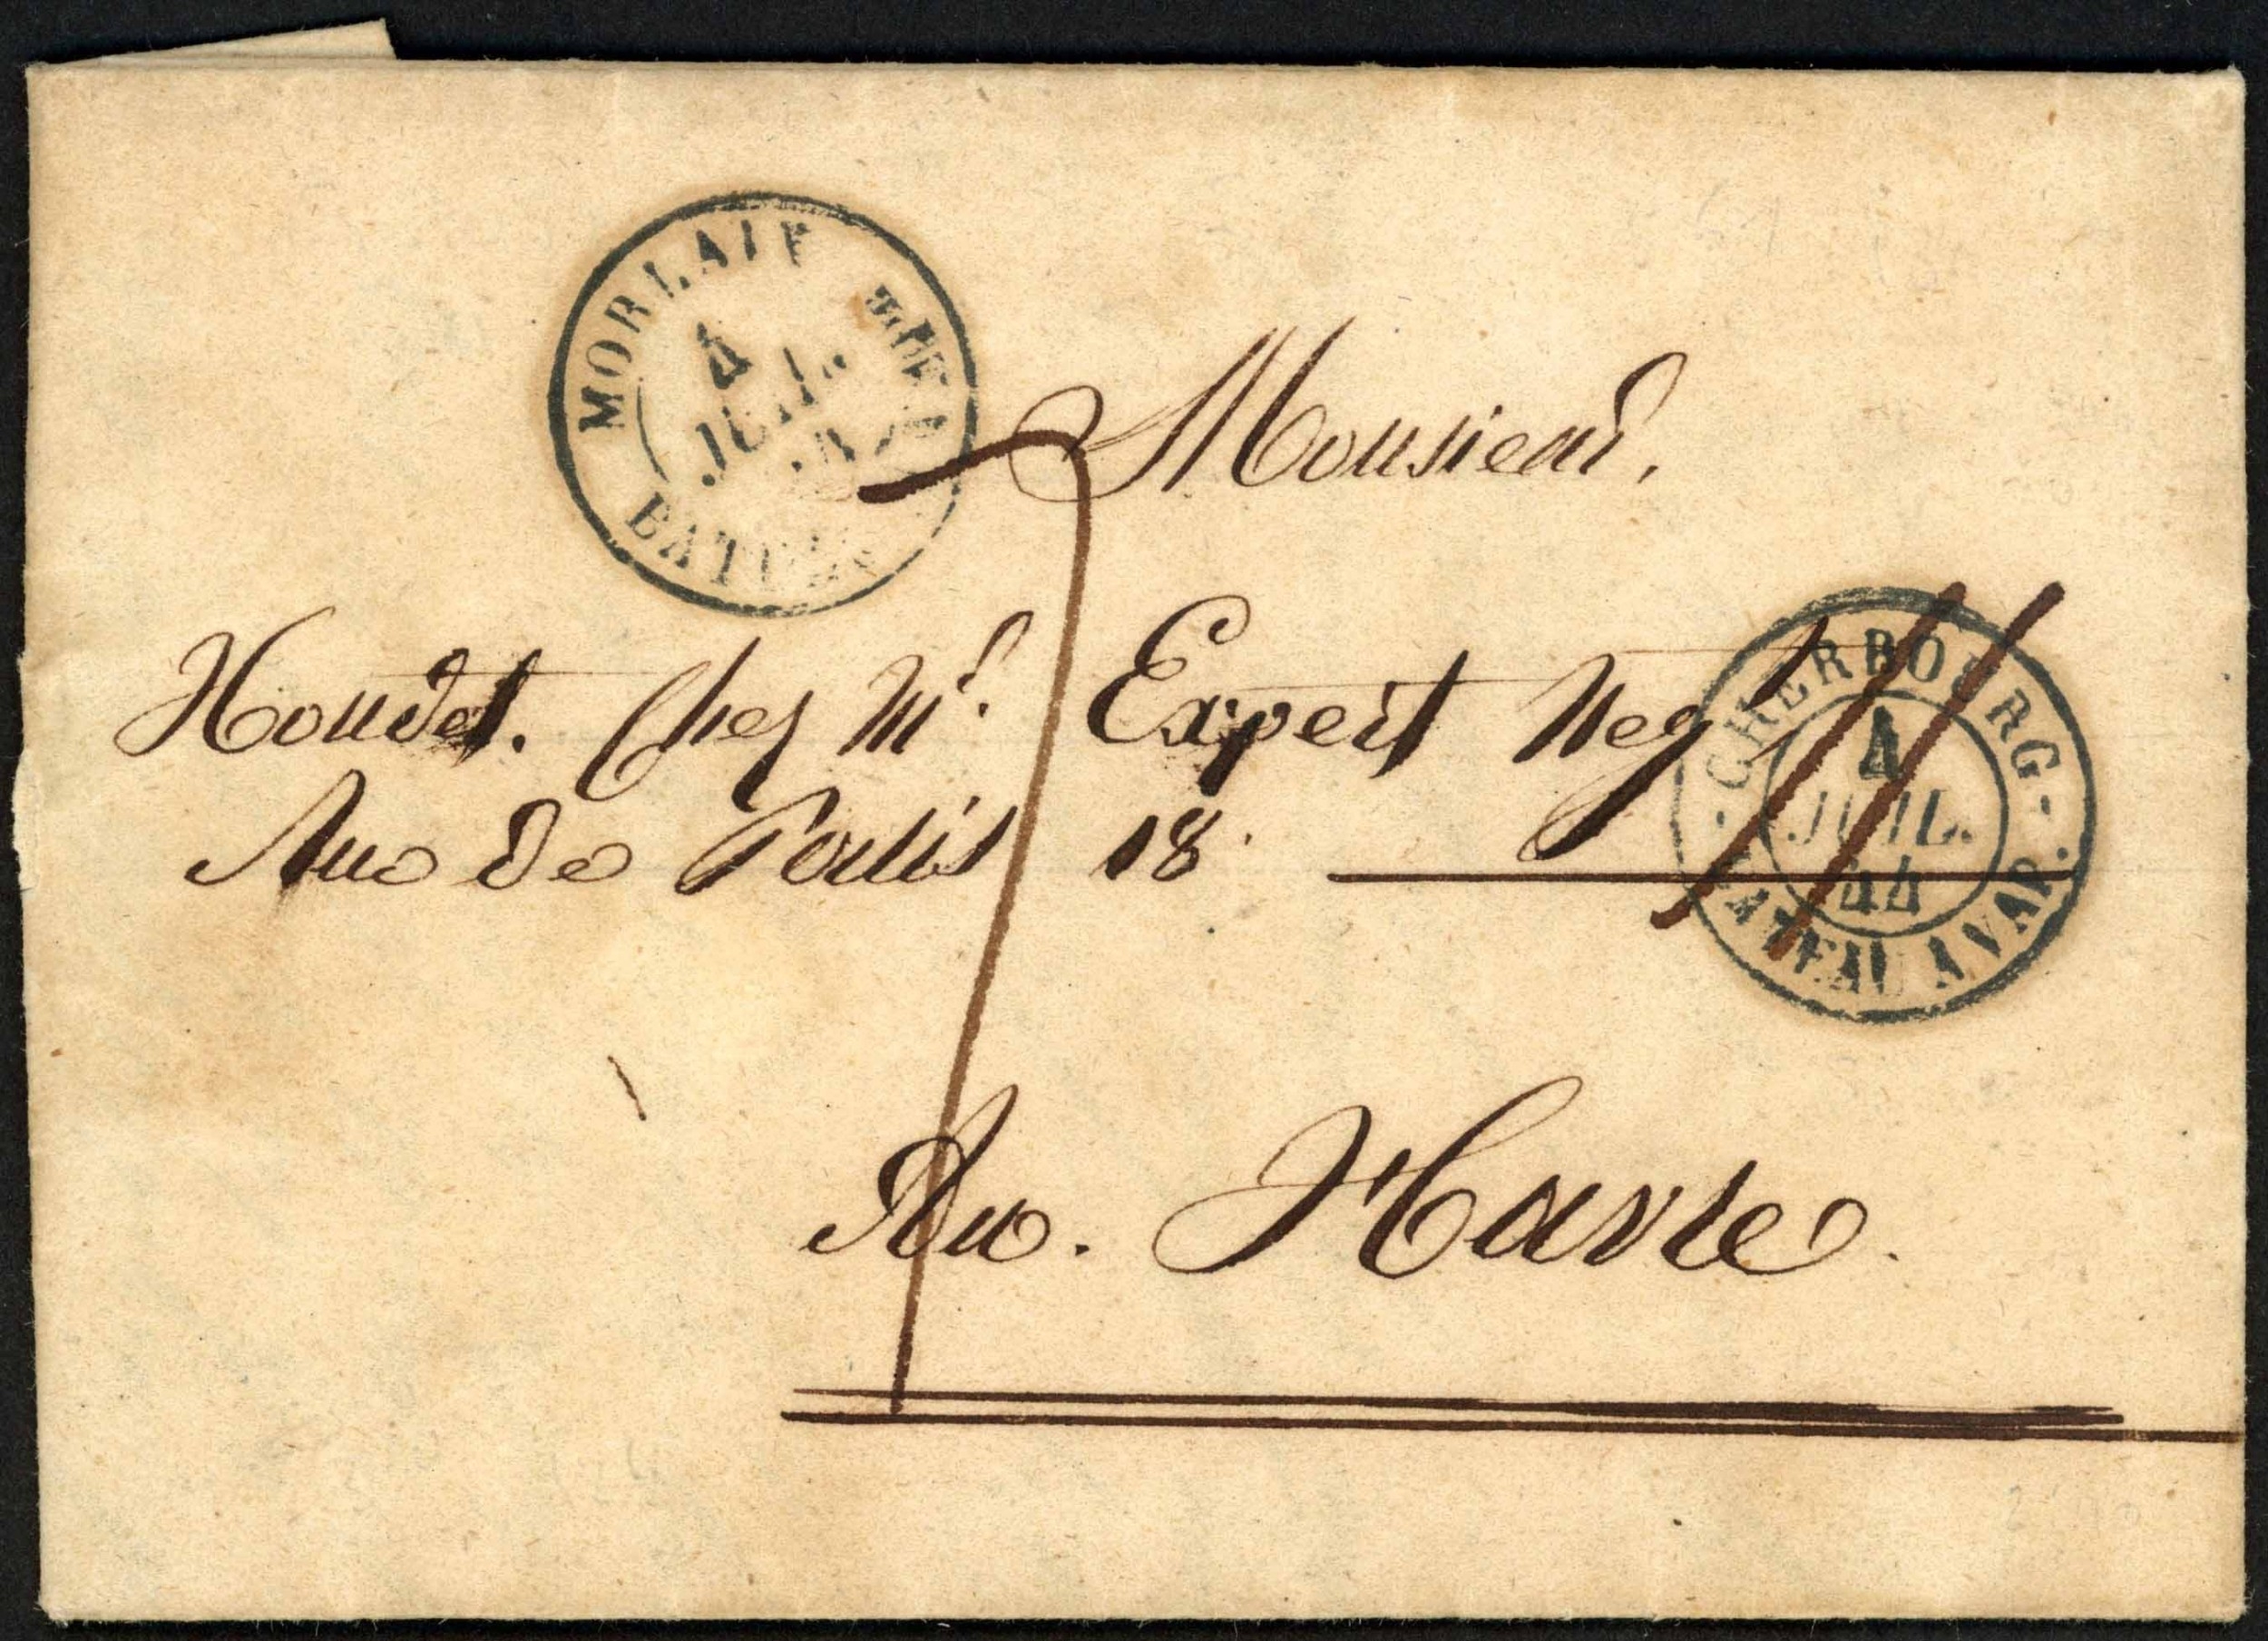 MORLAIX
4
JUIL.
BATEAU
Monsieur,
Houdet. Chez Mr. Expert Neg
Rue De Paris 18.
CHERBOURG
4
JUIL.
44
BATEAU A VAP.
7
Au. Havre.